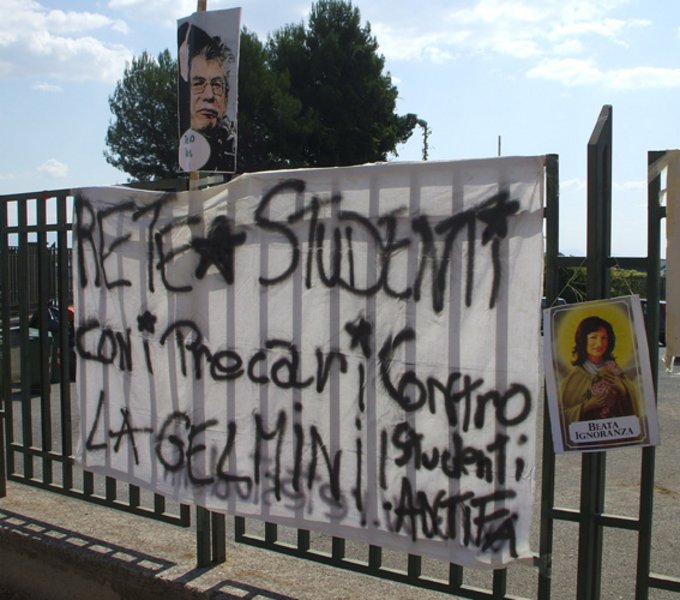 RETE★STUDENTI
CON i Precari Contro
LA GELMINI!
Studenti
ANTIFA
BEATA
IGNORANZA